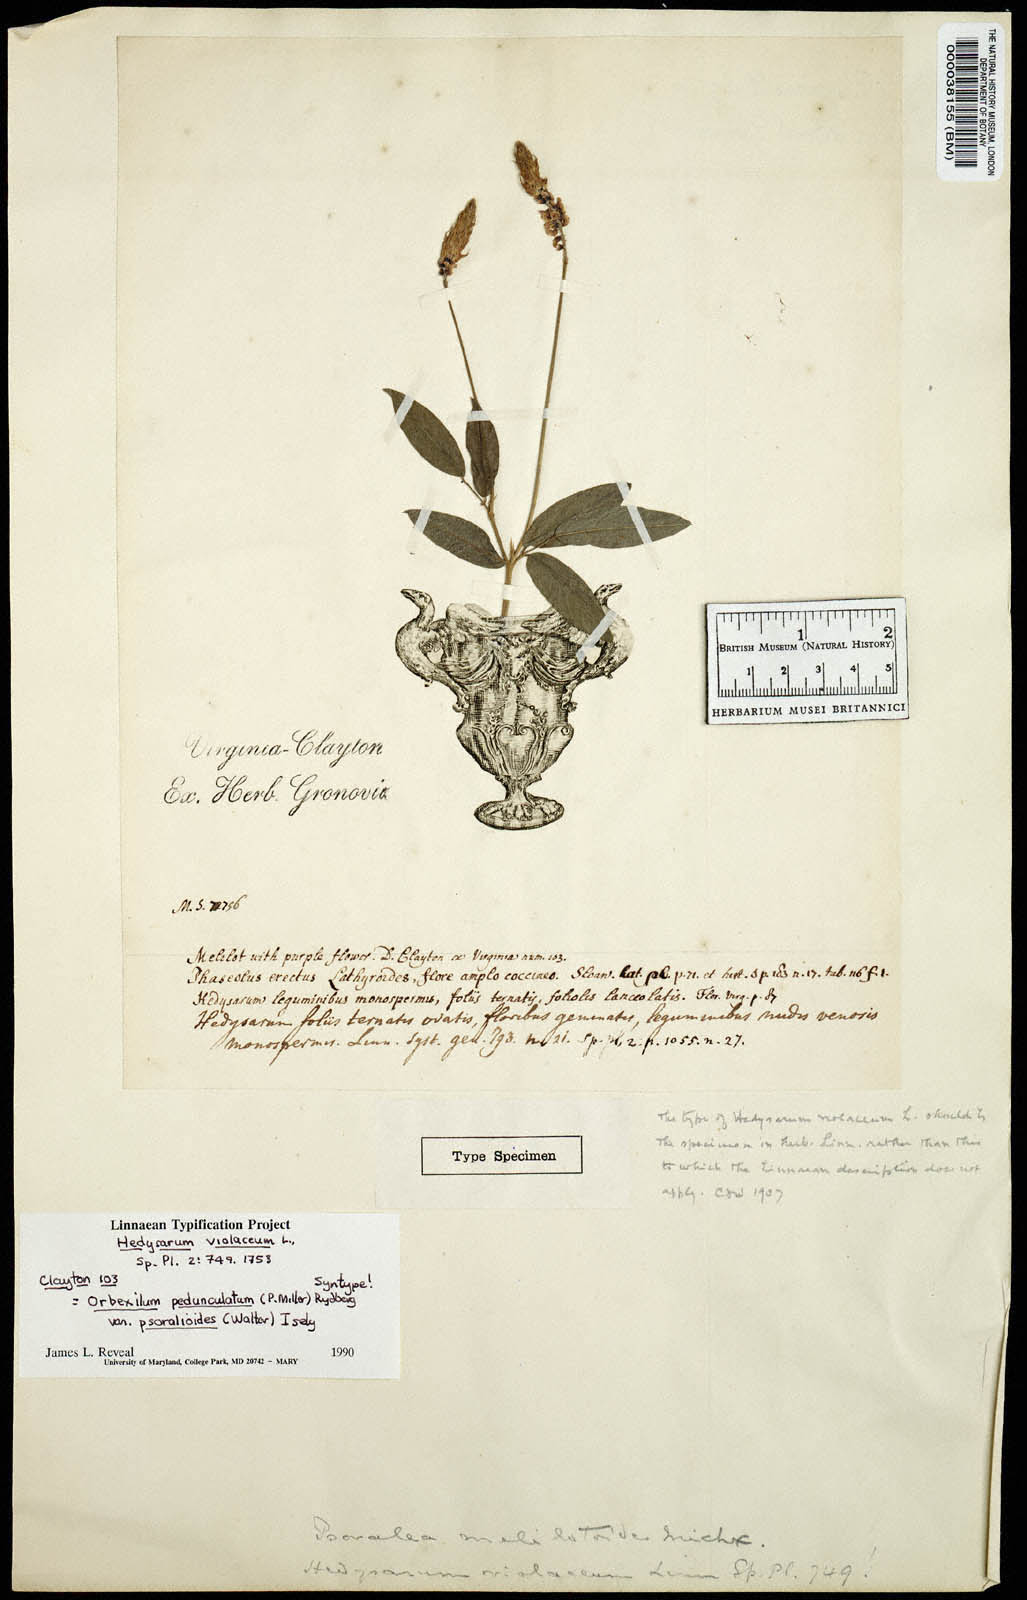 THE NATURAL HISTORY MUSEUM, LONDON
DEPARTMENT OF BOTANY
000038155 (BM)
1 2
BRITISH MUSEUM (NATURAL HISTORY)
1 2 3 4 5
HERBARIUM MUSEI BRITANNICI
Virginia-Clayton
Ex. Herb. Gronovii
M. S. 756
Melilot with purple flower. D. Clayton ex Virginia num. 103.
Phaseolus erectus Lathyroides, flore amplo coccineo. Sloan. Cat. p. 71. et hist. p. 183 n. 17. tab. 116 f. 1.
Hedysarum leguminibus monospermis, foliis ternatis, foliolis lanceolatis. Flor. Virg. p. 87
Hedysarum foliis ternatis ovatis, floribus geminatis, leguminibus nudis venosis
monospermis. Linn. Syst. gen. 793. n. 21. Sp. pl. 2. p. 1055. n. 27.
The type of Hedysarum violaceum L. should be
the specimen in herb. Linn. rather than this
to which the Linnaean description does not
apply. 1907
Type Specimen
Linnaean Typification Project
Hedysarum violaceum L.,
Sp. Pl. 2: 749. 1753
Clayton 103 Syntype!
= Orbexilum pedunculatum (P. Miller) Rydberg
var. psoralioides (Walter) Isely
James L. Reveal 1990
University of Maryland, College Park, MD 20742 – MARY
Psoralea melilotoides Michx.
Hedysarum violaceum Linn Sp. Pl. 749!